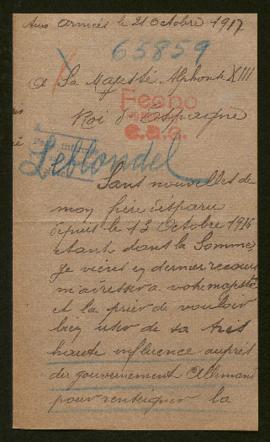 Aux armées le 21 Octobre 1917
65859
A Sa Majesté Alphonse XIII
Fecho
Roi d'Espagne
e.a.c.
Leblondel
Sans nouvelles de
mon frère disparu
depuis le 13 Octobre 1916
étant dans la Somme
Je viens en dernier recours
m'adresser a votre majesté
et la prier de vouloir
bien user de sa très
haute influence auprès
du gouvernement Allemand
pour renseigner la